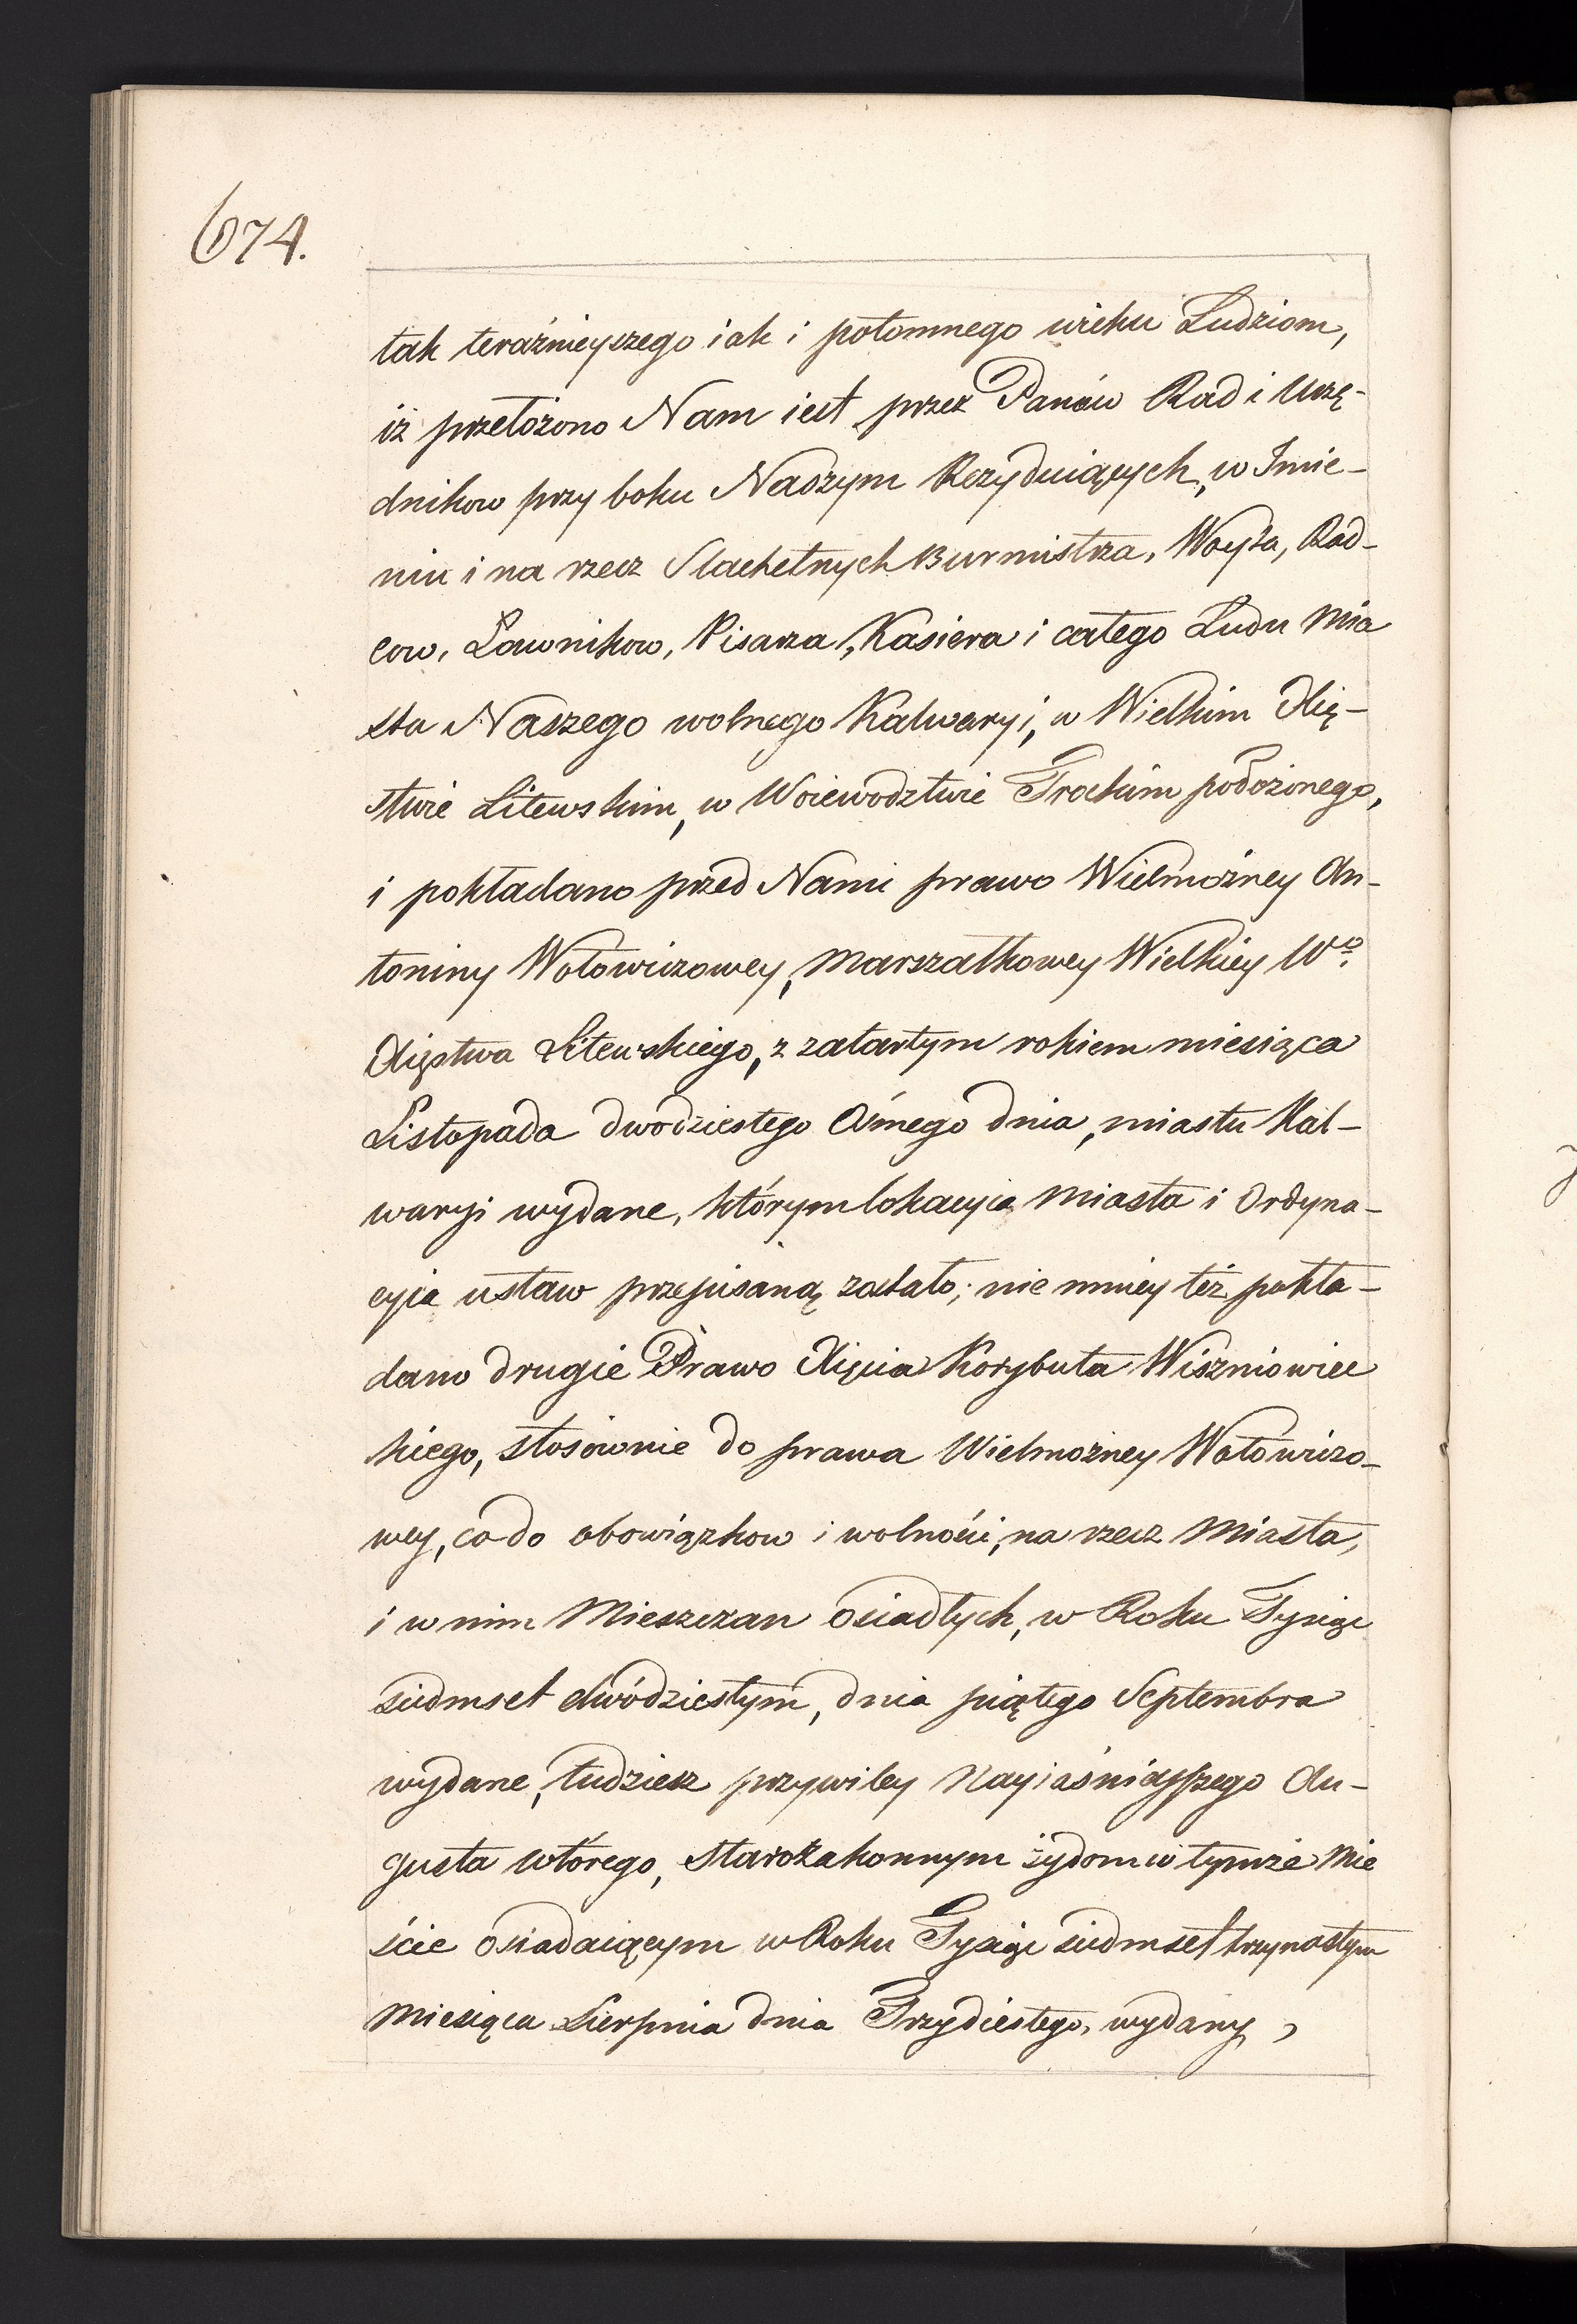 674.
tak teraźnieyszego iak i potomnego wieku Ludziom,
iż przełożono Nam iest przez Panów Rad i Urzę-
dnikow przy boku Naszym Rezyduiących, w Imie-
niu i na rzecz Slachetnych Burmistrza, Woyta, Rad-
cow, Ławnikow, Pisarza, Kasiera i całego Ludu Mia
sta Naszego wolnego Kalwaryi, w Wielkim Xię-
stwie Litewskim, w Woiewodztwie Trockim położonego,
i pokładano przed Nami prawo Wielmożney An-
toniny Wołowiczowey, Marszałkowey Wielkiey Wo.
Xięstwa Litewskiego, z zatartym rokiem miesiąca
Listopada dwodziestego Osmego dnia, miastu Kal-
waryi wydane, którym lokacyia Miasta i Ordyna-
cyia ustaw przepisaną zostało; nie mniey też pokła-
dano drugie Prawo Xięcia Korybuta Wiszniowiec
kiego, stosównie do prawa Wielmożney Wołowiczo-
wey, co do obowiązkow i wolności, na rzecz Miasta,
i w nim Mieszczan osiadłych, w Roku Tysiąc
siedmset dwódziestym, dnia piątego Septembra
wydane, tudziesz przywiley Nayiaśnieyszego Au-
gusta wtórego, Starozakonnym żydom w tymże Mie
ście osiadaiącym w Roku Tysiąc siedmset trzynastym
Miesiąca Sierpnia dnia Trzydiestego, wydany,